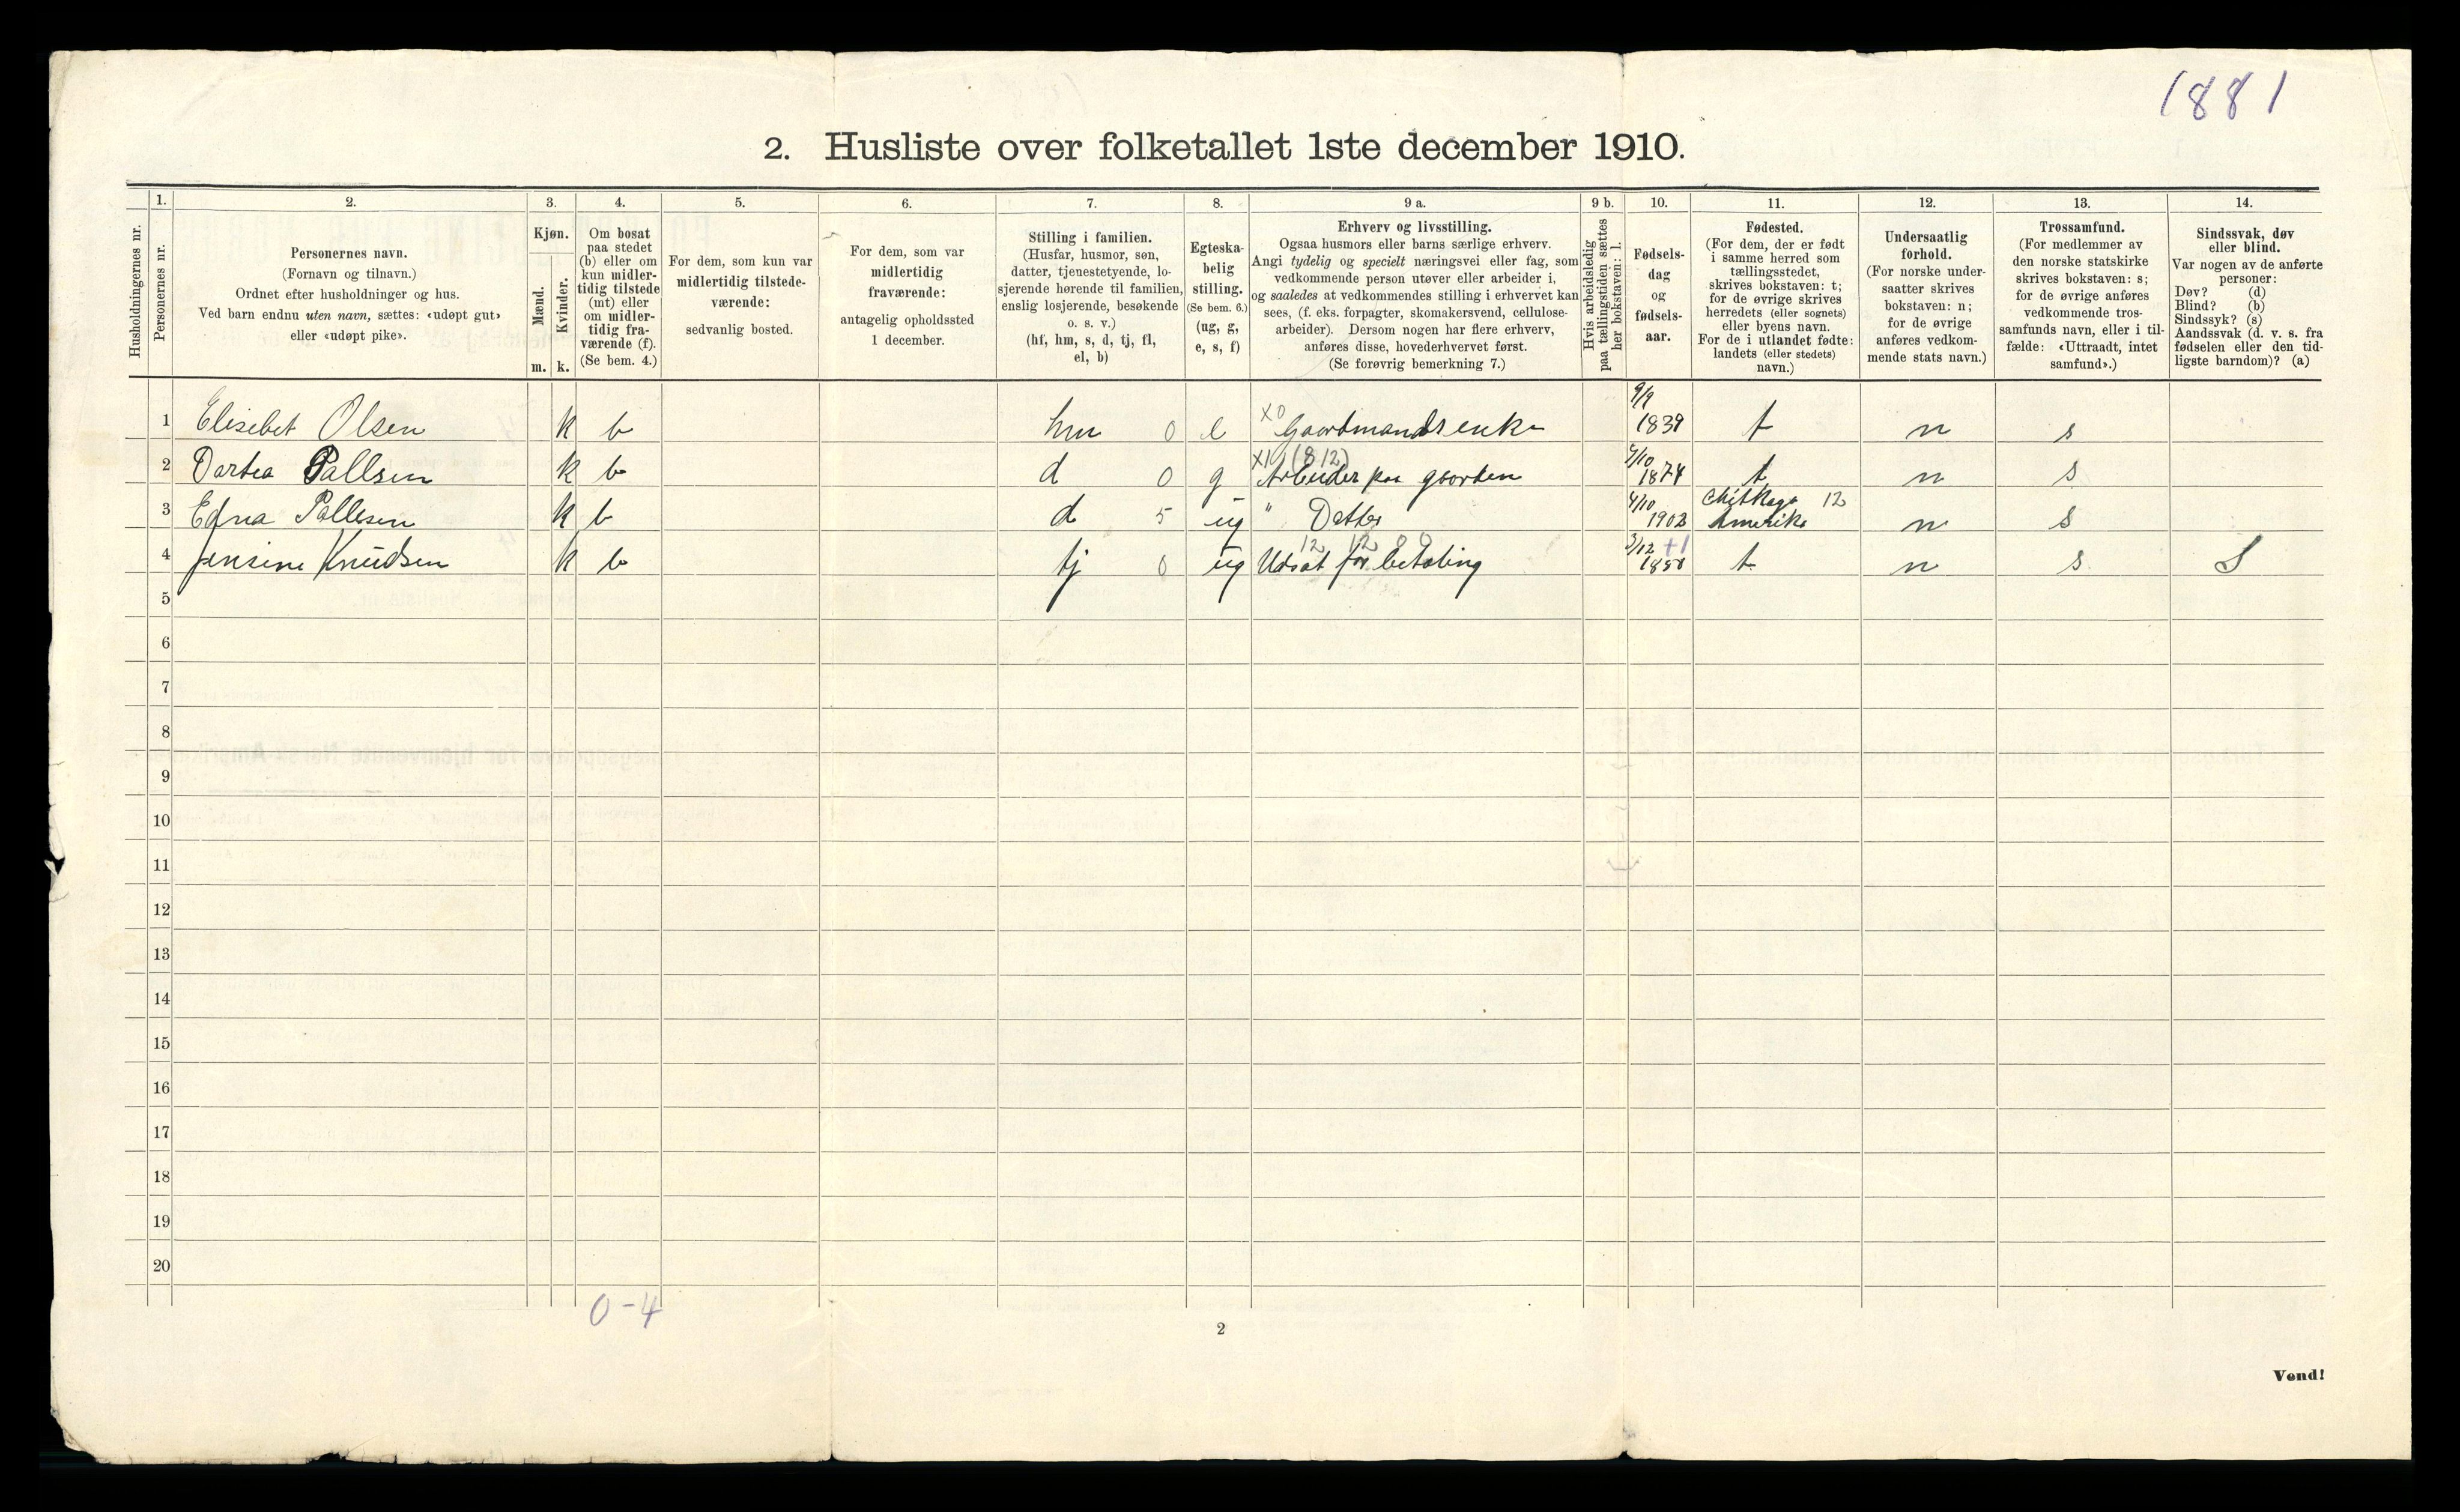 1881
2. Husliste over folketallet 1ste december 1910.
Husholdningernes nr.
1.
Personernes nr.
2.
Personernes navn.
(Fornavn og tilnavn.)
Ordnet efter husholdninger og hus.
Ved barn endnu uten navn, sættes: «udøpt gut»
eller «udøpt pike».
3.
Kjøn.
Mænd.
Kvinder.
m. k.
4.
Om bosat
paa stedet
(b) eller om
kun midler-
tidig tilstede
(mt) eller
om midler-
tidig fra-
værende (f).
(Se bem. 4.)
5.
For dem, som kun var
midlertidig tilstede-
værende:
sedvanlig bosted.
6.
For dem, som var
midlertidig
fraværende:
antagelig opholdssted
1 december.
7.
Stilling i familien.
(Husfar, husmor, søn,
datter, tjenestetyende, lo-
sjerende hørende til familien,
enslig losjerende, besøkende
o. s. v.)
(hf, hm, s, d, tj, fl,
el, b)
8.
Egteska-
belig
stilling.
(Se bem. 6.)
(ug, g,
e, s, f)
9 a.
Erhverv og livsstilling.
Ogsaa husmors eller barns særlige erhverv.
Angi tydelig og specielt næringsvei eller fag, som
vedkommende person utøver eller arbeider i,
og saaledes at vedkommendes stilling i erhvervet kan
sees, (f. eks. forpagter, skomakersvend, cellulose-
arbeider). Dersom nogen har flere erhverv,
anføres disse, hovederhvervet først.
(Se forøvrig bemerkning 7.)
9 b.
Hvis arbeidsledig
paa tællingstiden sættes
her bokstaven: l.
10.
Fødsels-
dag
og
fødsels-
aar.
11.
Fødested.
(For dem, der er født
i samme herred som
tællingsstedet,
skrives bokstaven: t;
for de øvrige skrives
herredets (eller sognets)
eller byens navn.
For de i utlandet fødte:
landets (eller stedets)
navn.)
12.
Undersaatlig
forhold.
(For norske under-
saatter skrives
bokstaven: n;
for de øvrige
anføres vedkom-
mende stats navn.)
13.
Trossamfund.
(For medlemmer av
den norske statskirke
skrives bokstaven: s;
for de øvrige anføres
vedkommende tros-
samfunds navn, eller i til-
fælde: «Uttraadt, intet
samfund».)
14.
Sindssvak, døv
eller blind.
Var nogen av de anførte
personer:
Døv? (d)
Blind? (b)
Sindssyk? (s)
Aandssvak (d. v. s. fra
fødselen eller den tid-
ligste barndom)? (a)
1 Elisebet Olsen k b hm 0 e X0 Gaardmands enke 9/9 1839 t n s
2 Dortea Pallsen k b d 0 g (812) Arbeider paa gaarden 5/10 1874 t n s
3 Edna Pallesen k b d 5 ug " Datter 4/10 1902 Chitkago 12 Amerika n s
4 Jensine Knudsen k b tj 0 ug 12 12 00 Udsat for betaling 3/12 +1 1850 t n s S
5
6
7
8
9
10
11
12
13
14
15
16
17
18
19
20
0-4
2
Vend!